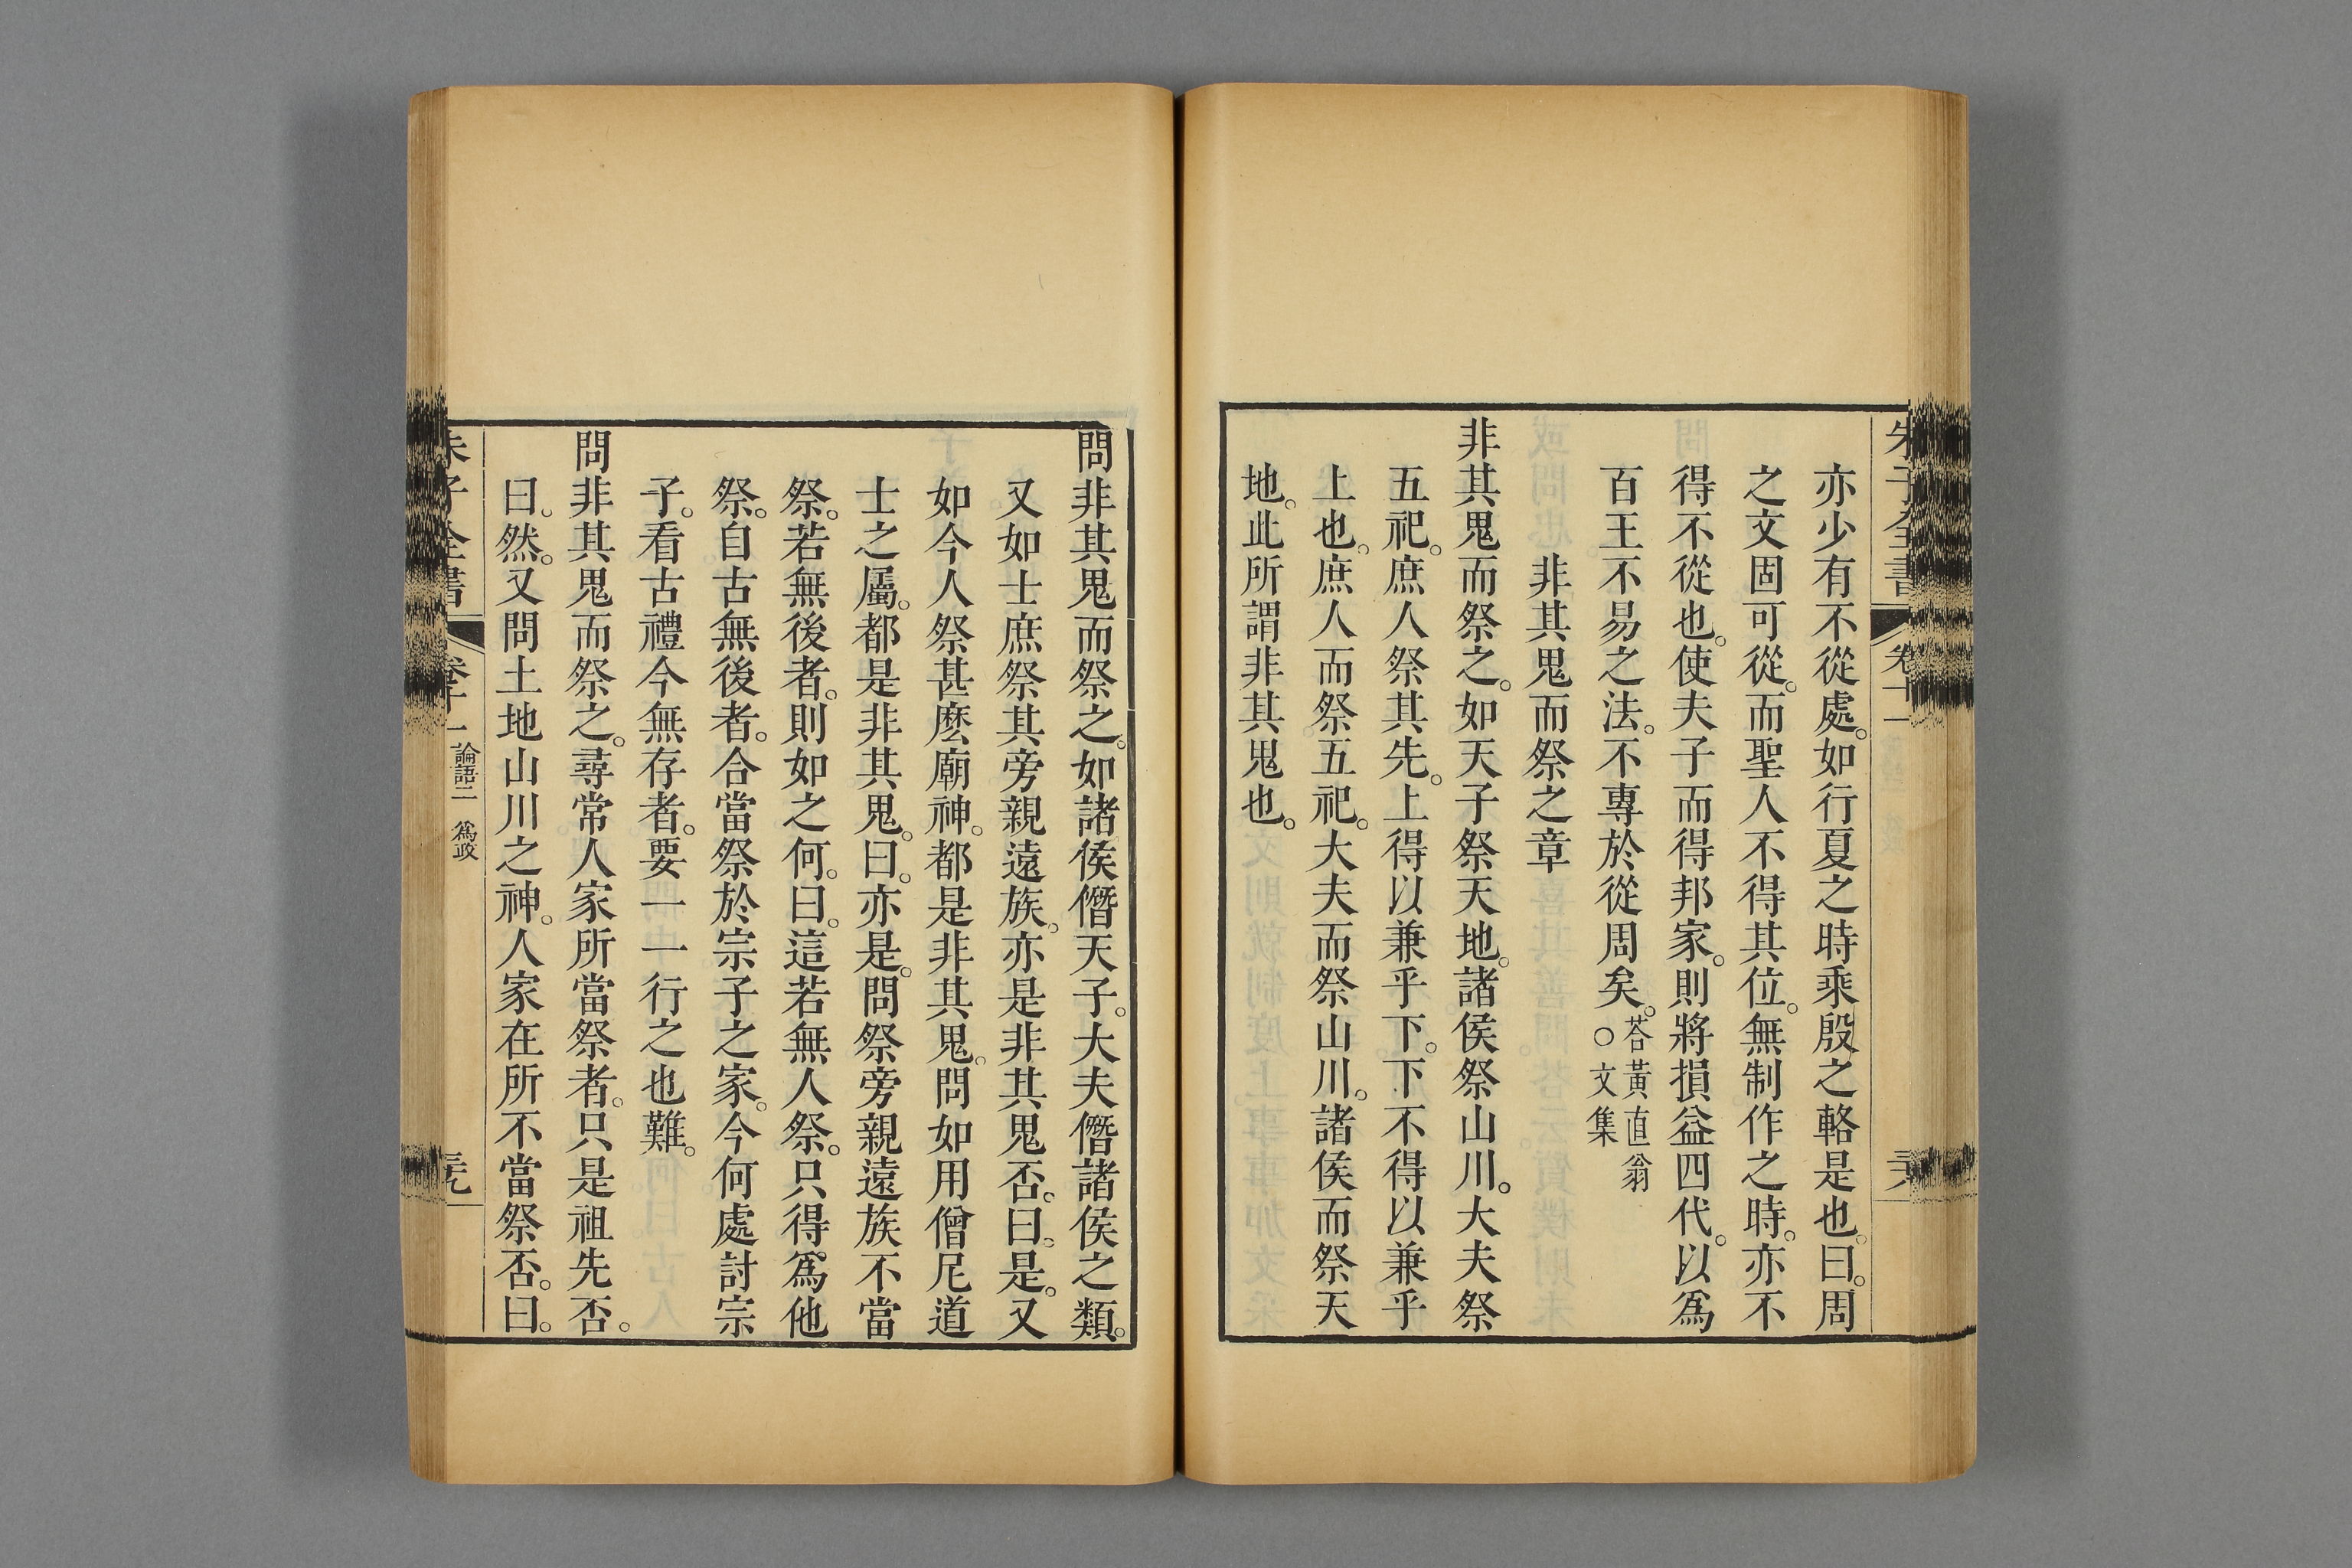 朱子全書 卷十一
亦少有不從處。如行夏之時乘殷之輅是也。曰。周
之文固可從。而聖人不得其位。無制作之時。亦不
得不從也。使夫子而得邦家。則將損益四代。以爲
百王不易之法。不專於從周矣。荅黃直翁○文集
非其鬼而祭之章
非其鬼而祭之。如天子祭天地。諸侯祭山川。大夫祭
五祀。庶人祭其先。上得以兼乎下。下不得以兼乎
上也。庶人而祭五祀。大夫而祭山川。諸侯而祭天
地。此所謂非其鬼也。
問非其鬼而祭之。如諸侯僭天子。大夫僭諸侯之類。
又如士庶祭其旁親遠族。亦是非其鬼否。曰。是。又
如今人祭甚麽廟神。都是非其鬼。問如用僧尼道
士之屬。都是非其鬼。曰。亦是。問祭旁親遠族不當
祭。若無後者。則如之何。曰。這若無人祭。只得爲他
祭。自古無後者。合當祭於宗子之家。今何處討宗
子。看古禮今無存者。要一一行之也難。
問非其鬼而祭之。尋常人家所當祭者。只是祖先否。
曰。然。又問土地山川之神。人家在所不當祭否。曰。
朱子全書 卷十一 論語二 爲政